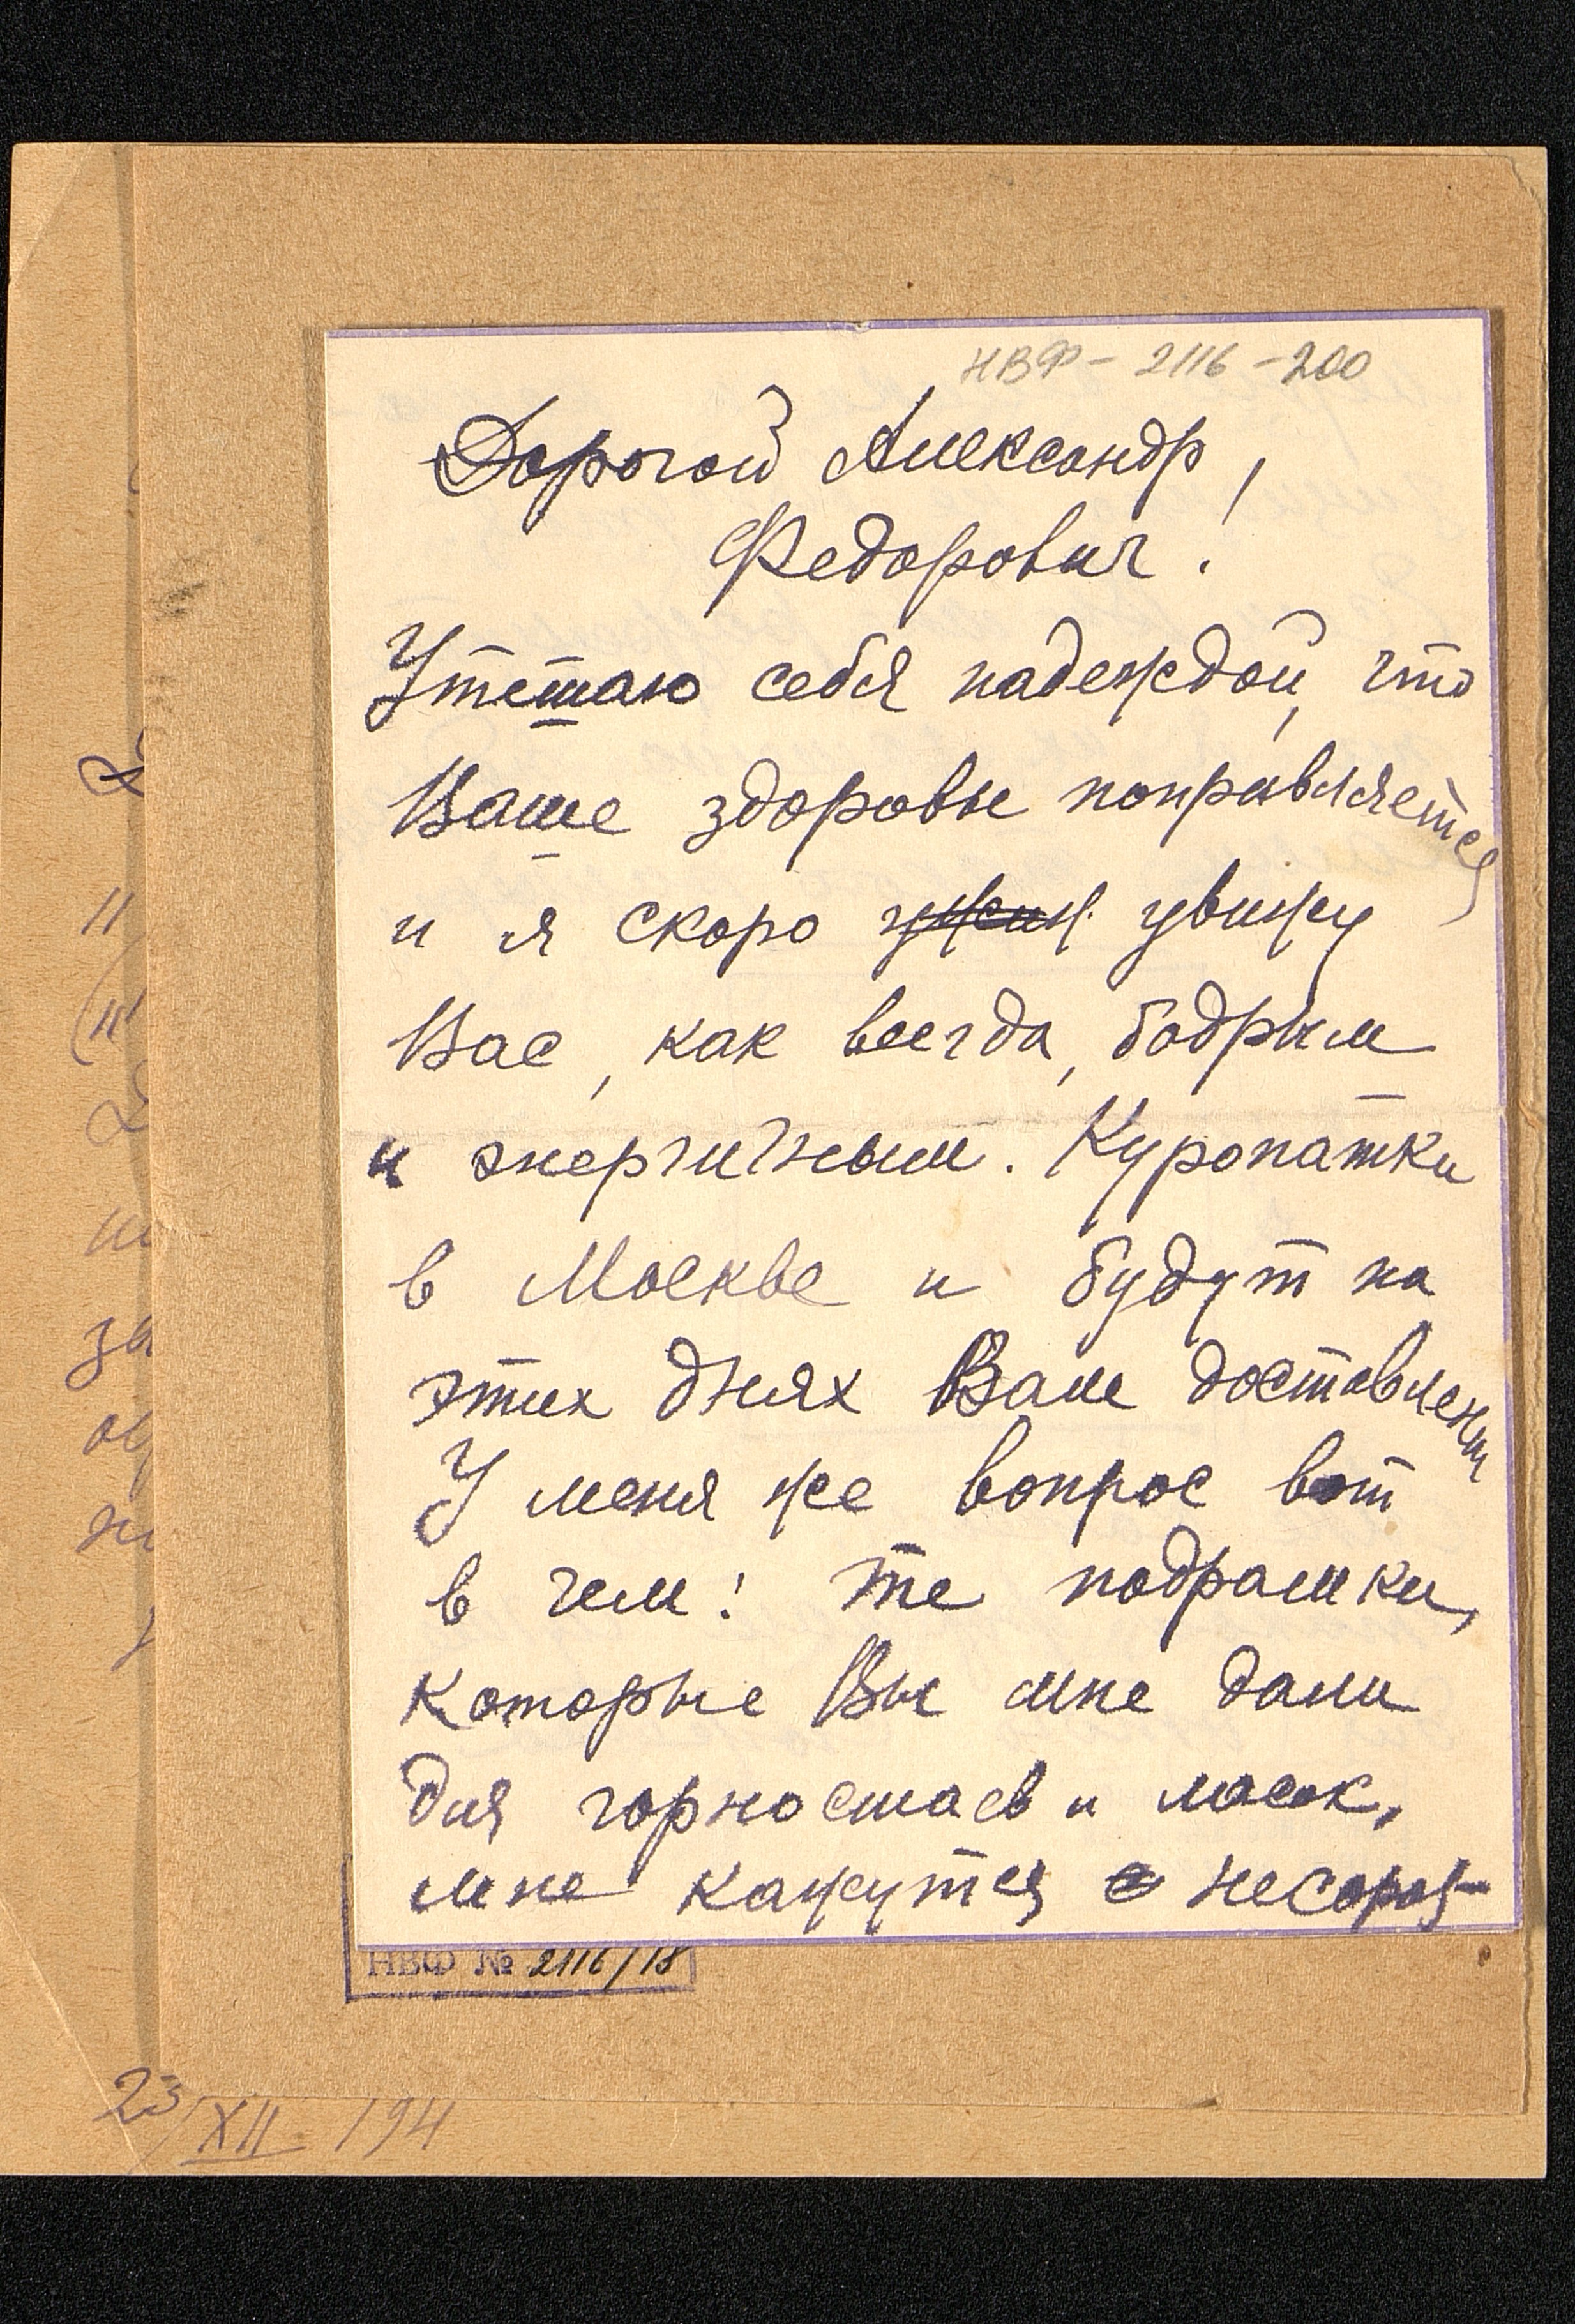 НВФ - 2116 - 200
Дорогой Александр,
Федорович!
Утешаю себя надеждой, что
Ваше здоровье поправляется
и я скоро увижу
Вас, как всегда, бодрым
и энергичным. Куропатки
в Москве и будут на
этих днях Вам доставлены
У меня же вопрос вот
в чем: те подрамки,
которые Вы мне дали
для горностаев и ласок,
мне кажутся несораз-
НВФ № 2116/18
23/XII 194